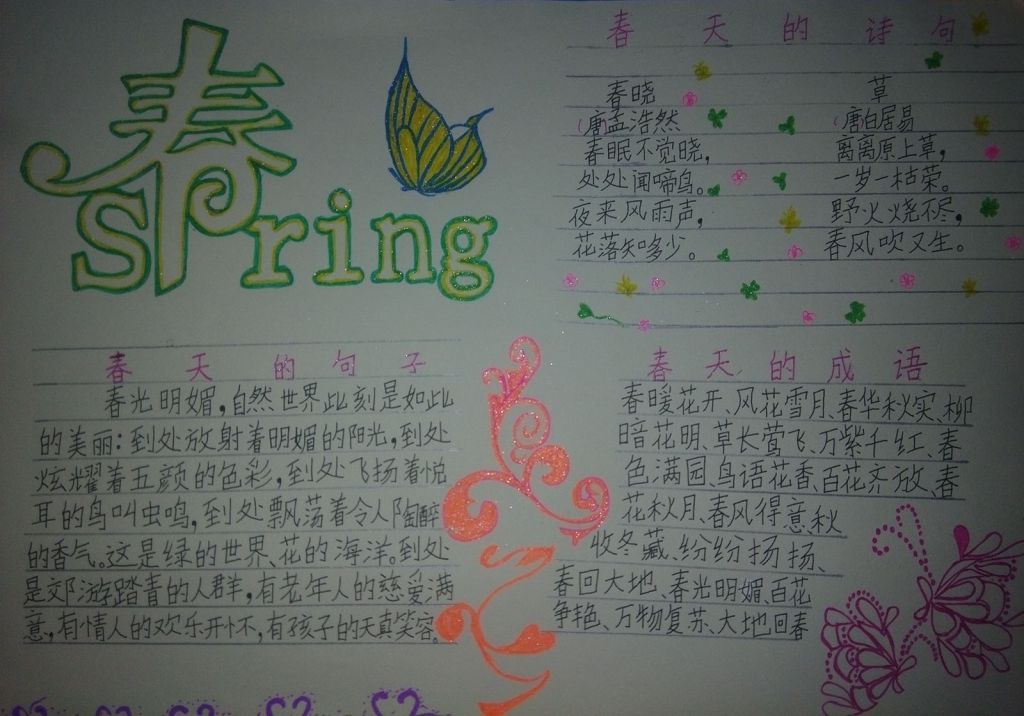 春
spring
春天的诗句
春晓
(唐)孟浩然
春眠不觉晓，
处处闻啼鸟。
夜来风雨声，
花落知多少。
草
(唐)白居易
离离原上草，
一岁一枯荣。
野火烧不尽，
春风吹又生。
春天的句子
春光明媚，自然世界此刻是如此
的美丽：到处放射着明媚的阳光，到处
炫耀着五颜的色彩，到处飞扬着悦
耳的鸟叫虫鸣，到处飘荡着令人陶醉
的香气。这是绿的世界、花的海洋。到处
是郊游踏青的人群，有老年人的慈爱满
意，有情人的欢乐开怀，有孩子的天真笑容。
春天的成语
春暖花开、风花雪月、春华秋实、柳
暗花明、草长莺飞、万紫千红、春
色满园、鸟语花香、百花齐放、春
花秋月、春风得意、秋
收冬藏、纷纷扬扬、
春回大地、春光明媚、百花
争艳、万物复苏、大地回春